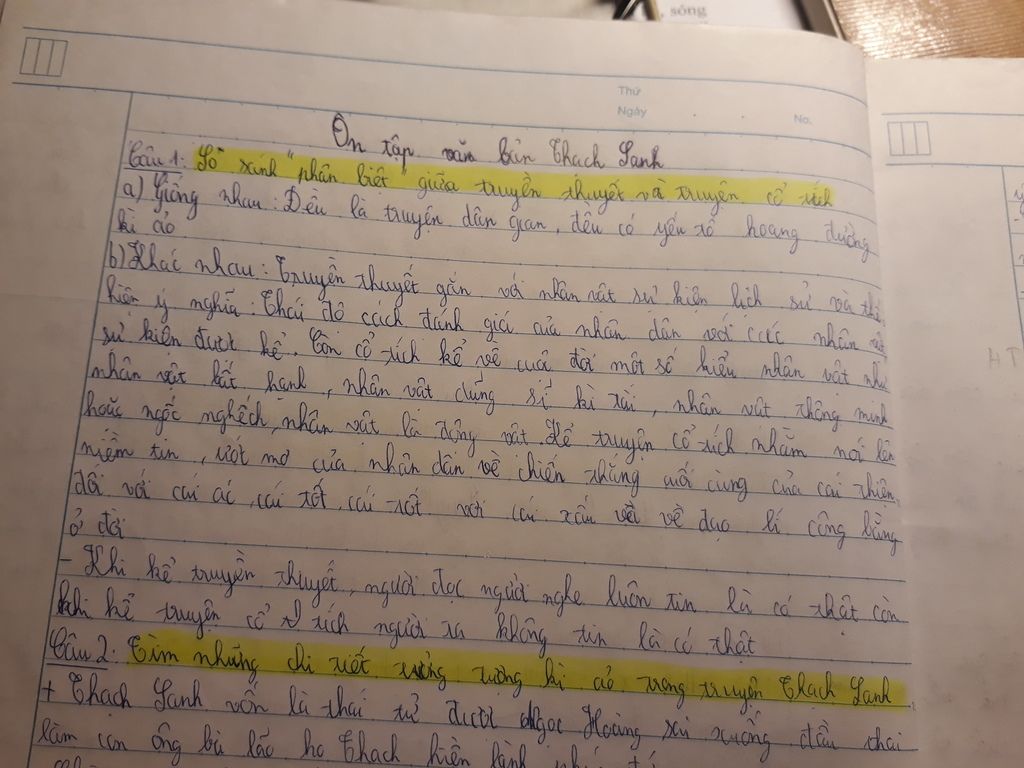 sông
Thứ
Ngày
No.
Ôn tập văn bản Thạch Sanh
Câu 1: So sánh "phân biệt" giữa truyền thuyết và truyện cổ tích
a) Giống nhau: Đều là truyện dân gian, đều có yếu tố hoang đường
kì ảo
b) Khác nhau: Truyền thuyết gắn với nhân vật sự kiện lịch sử và thể
hiện ý nghĩa: Thái độ cách đánh giá của nhân dân với các nhân vật
sự kiện được kể. Còn cổ tích kể về cuộc đời một số kiểu nhân vật như
nhân vật bất hạnh, nhân vật dũng sĩ kì tài, nhân vật thông minh
hoặc ngốc nghếch, nhân vật là động vật. Kể truyện cổ tích nhằm nói lên
niềm tin, ước mơ của nhân dân về chiến thắng cuối cùng của cái thiện
đối với cái ác, cái tốt, cái tốt với cái xấu về đạo lí công bằng
ở đời
- Khi kể truyền thuyết, người đọc người nghe luôn tin là có thật còn
khi kể truyện cổ tích người ta không tin là có thật
Câu 2: Tìm những chi tiết tưởng tượng kì ảo trong truyện Thạch Sanh
+ Thạch Sanh vốn là thái tử được Ngọc Hoàng sai xuống đầu thai
làm con ông bà lão họ Thạch hiền lành